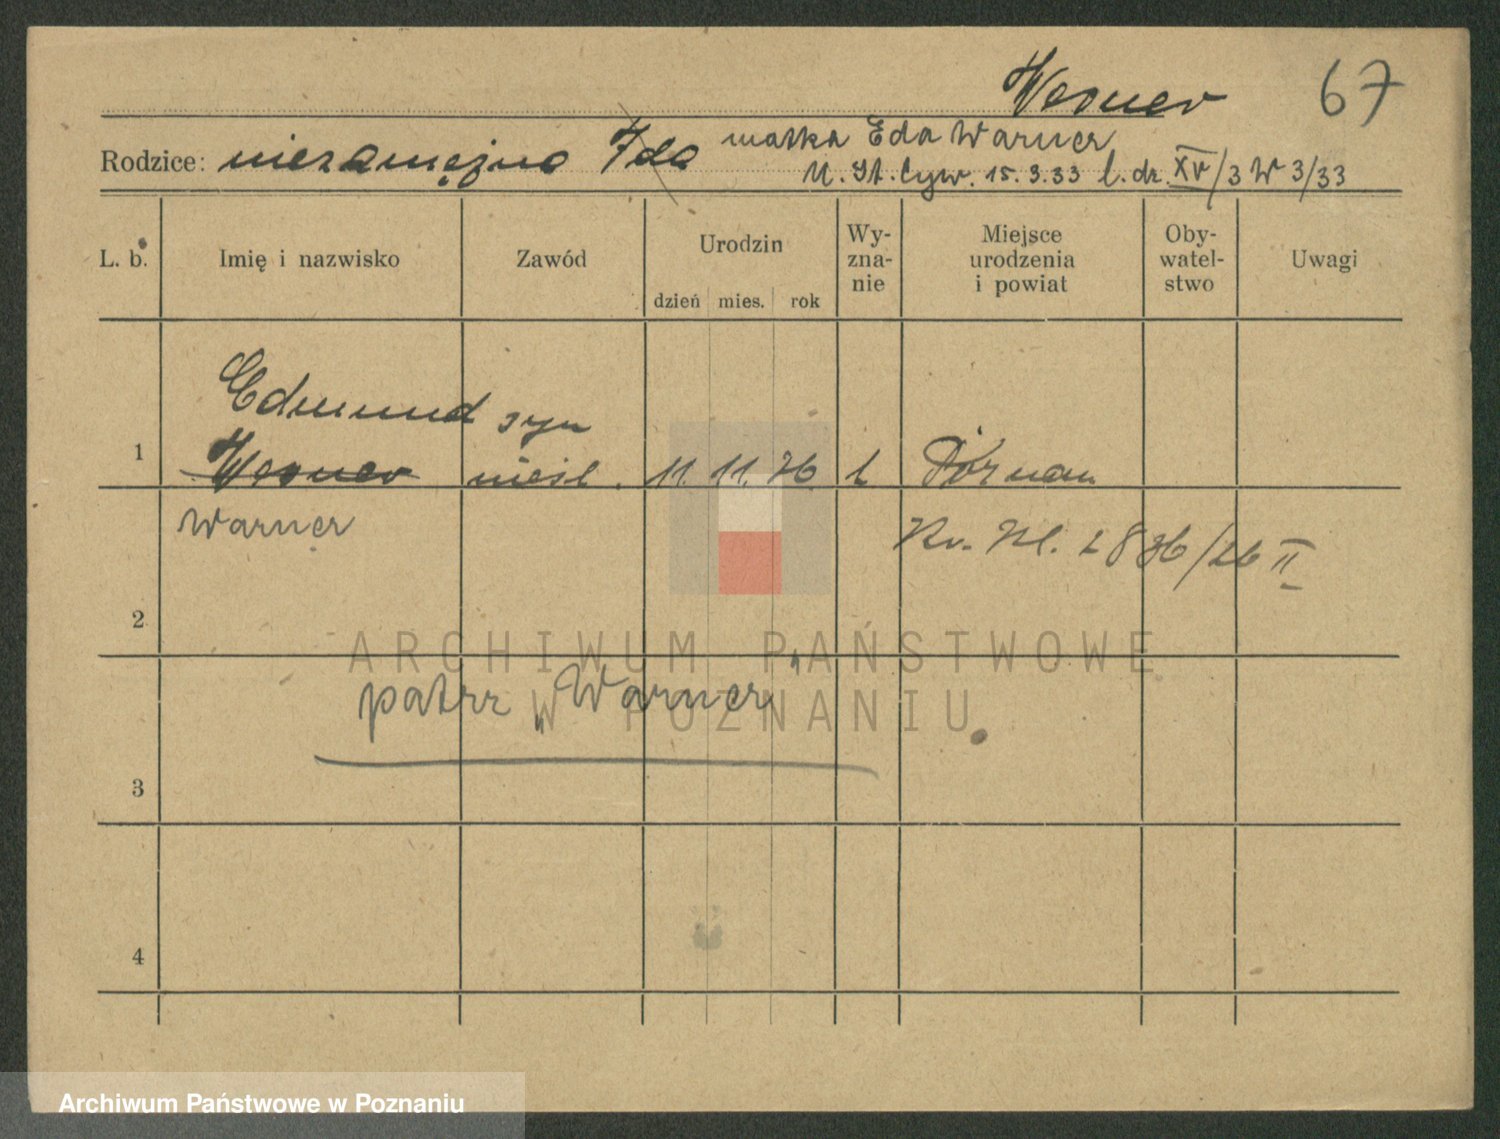 Werner 67
matka Eda Warner
Rodzice: niezamężna Ida
U. St. Cyw. 15.3.33 l. dz. XV/3 W 3/33
L. b. Imię i nazwisko Zawód Urodzin dzień mies. rok Wy-zna-nie Miejsce urodzenia i powiat Oby-watel-stwo Uwagi
Edmund syn
1 Werner nieśl. 11. 11. 26 k Poznań
Warner Kr. Nl. 2836/26 II
2
ARCHIWUM PAŃSTWOWE
patrz „Warner"
W POZNANIU
3
4
Archiwum Państwowe w Poznaniu